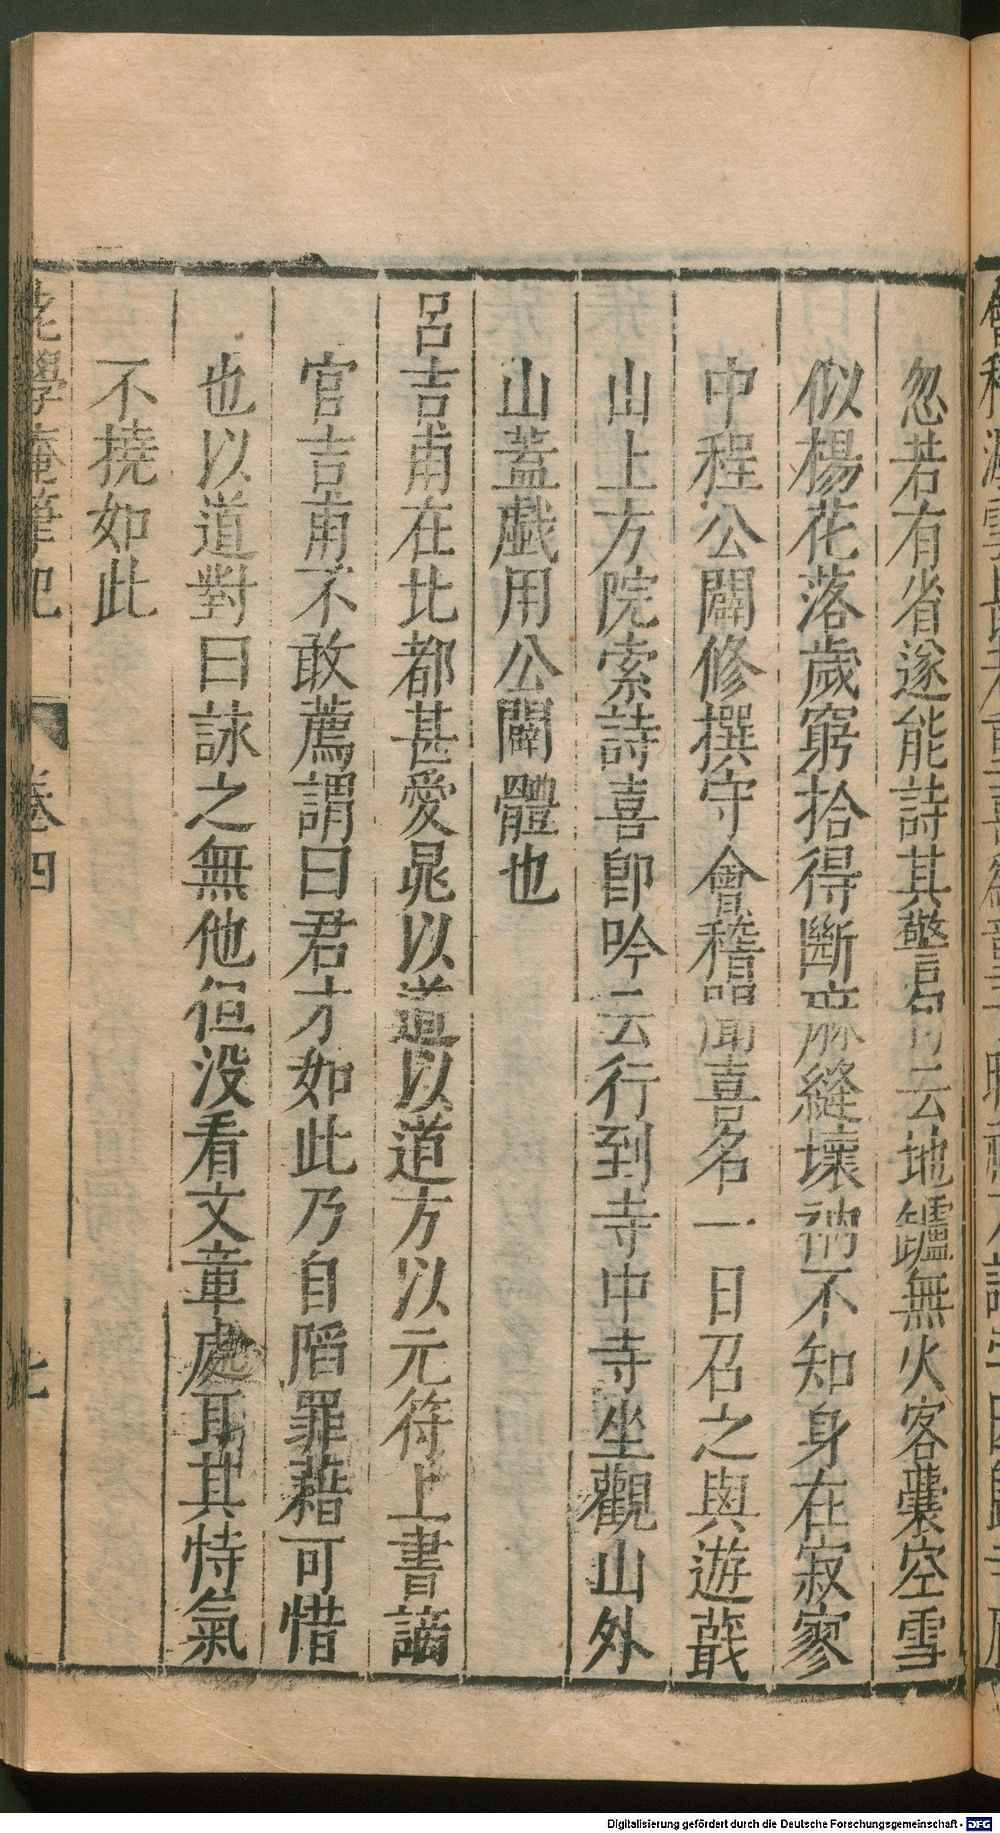 忽若有省遂能詩其警句云地罏無火客囊空雪
似楊花落歲窮拾得斷麻縫壞衲不知身在寂寥
中程公闢修撰守會稽聞喜名一日召之與遊蕺
山上方院索詩喜卽吟云行到寺中寺坐觀山外
山蓋戯用公闢體也
呂吉甫在北都甚愛晁以道以道方以元符上書謫
官吉甫不敢薦謂曰君才如此乃自陷罪藉可惜
也以道對曰詠之無他但没看文章處耳其恃氣
不撓如此
老學庵筆記 卷四 七
Digitalisierung gefördert durch die Deutsche Forschungsgemeinschaft - DFG